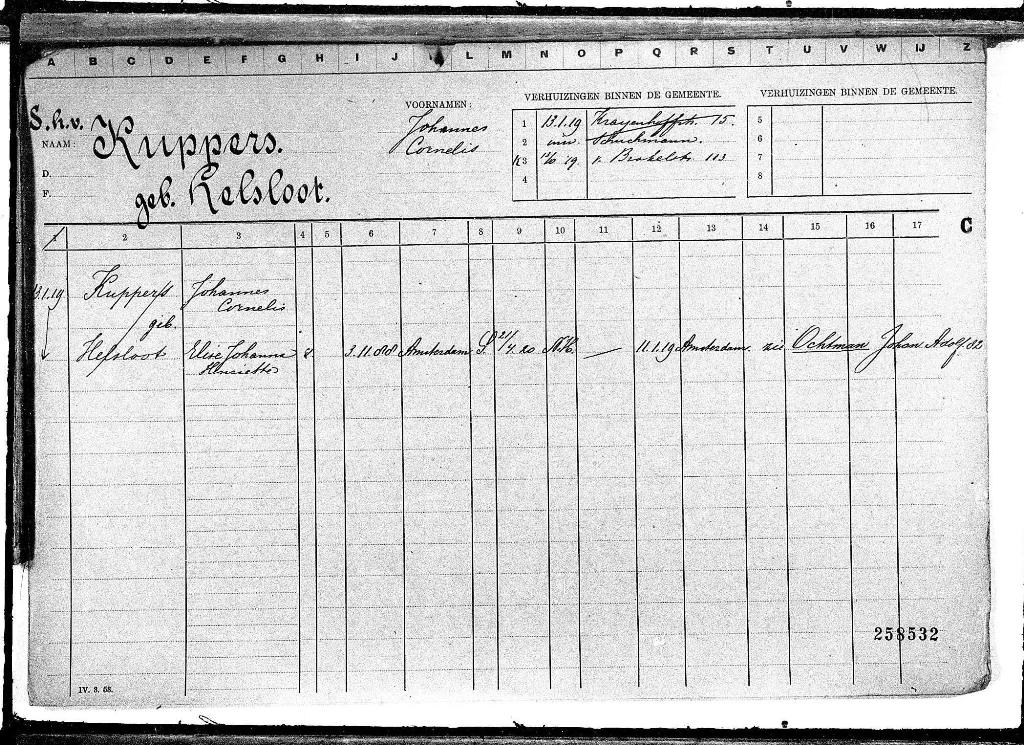 A B C D E F G H I J K L M N O P Q R S T U V W IJ Z
S.h.v.
NAAM:
Kuppers.
D.
F.
geb. Helsloot.
VOORNAMEN:
Johannes
Cornelis
VERHUIZINGEN BINNEN DE GEMEENTE.
1 13.1.19 Krayenhoffstr. 15.
2 inw. Schuckmann.
3 19 v. Brakelstr 113
4
VERHUIZINGEN BINNEN DE GEMEENTE.
5
6
7
8
1 2 3 4 5 6 7 8 9 10 11 12 13 14 15 16 17
C
13.1.19 Kuppers Johannes
Cornelis
geb.
Helsloot Elise Johanna 3.11.88 Amsterdam S. 21/4.20 N.H. — 11.1.19 Amsterdam. zie Ochtman Johan Adolf 82
Henrietta
258532
IV. 3. 58.